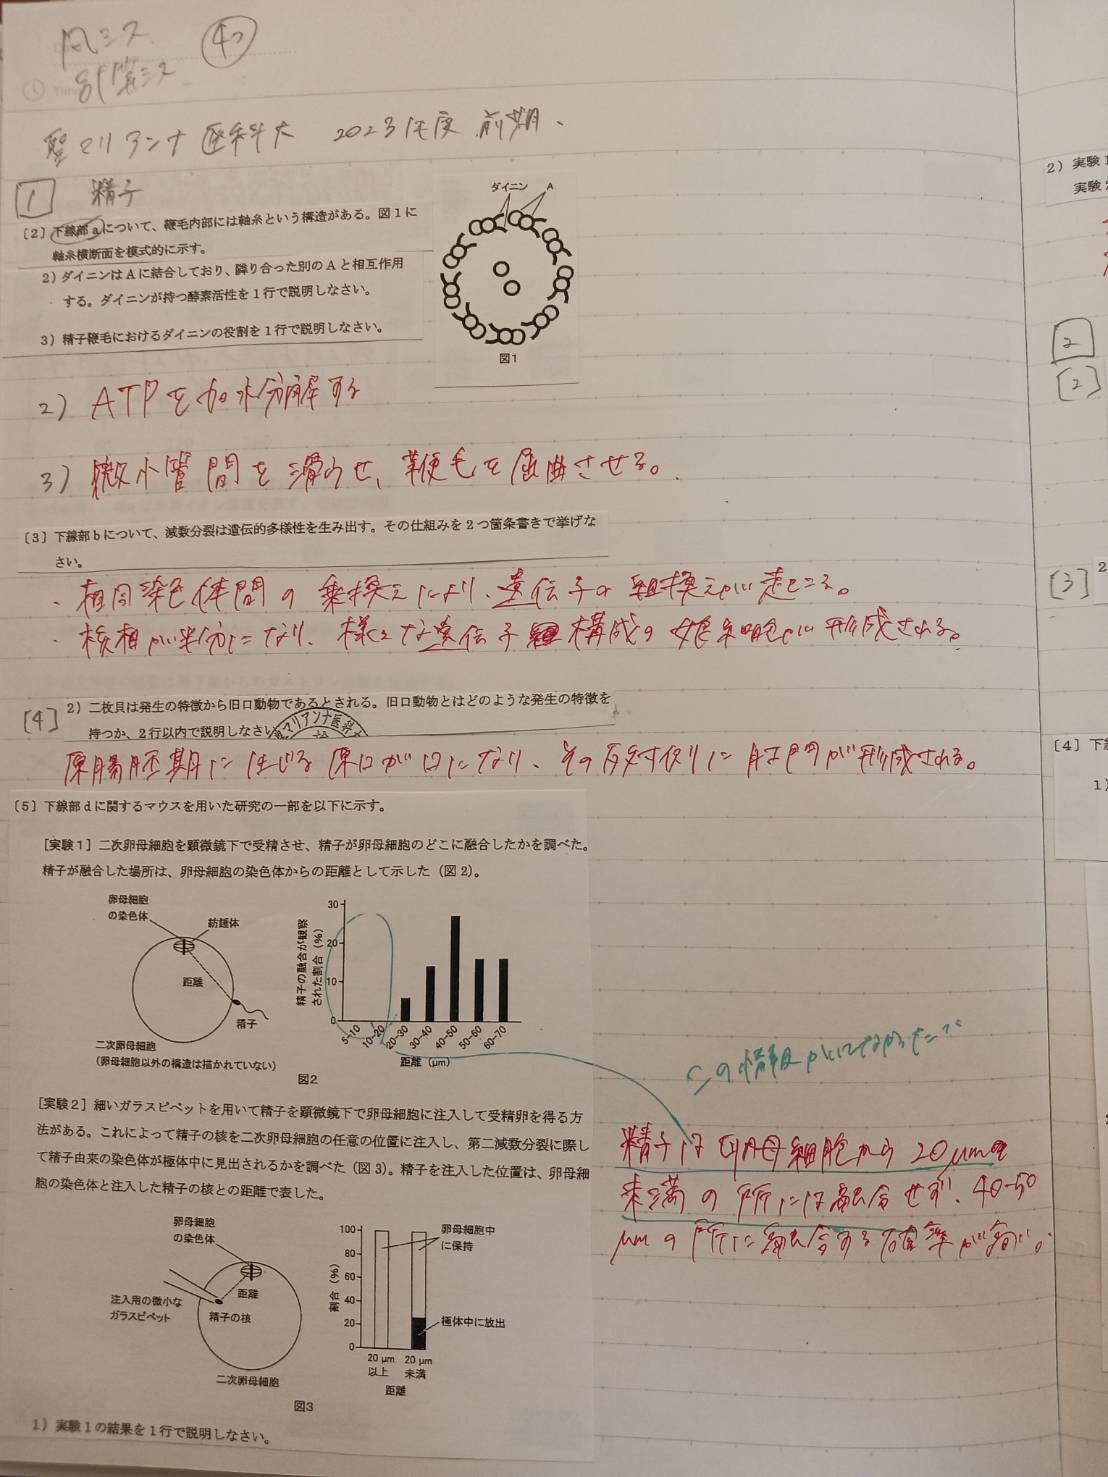 凡ミス
計算ミス
4つ
聖マリアンナ医科大 2023年度 前期.
1 精子
〔2〕下線部aについて、鞭毛内部には軸糸という構造がある。図1に
軸糸横断面を模式的に示す。
2）ダイニンはAに結合しており、隣り合った別のAと相互作用
する。ダイニンが持つ酵素活性を1行で説明しなさい。
3）精子鞭毛におけるダイニンの役割を1行で説明しなさい。
ダイニン A
図1
2) ATPを加水分解する
3) 微小管間を滑らせ、鞭毛を屈曲させる。
〔3〕下線部bについて、減数分裂は遺伝的多様性を生み出す。その仕組みを2つ箇条書きで挙げな
さい。
・相同染色体間の乗換えにより、遺伝子の組換えが起こる。
・核相が半分になり、様々な遺伝子構成の娘細胞が形成される。
[4] 2）二枚貝は発生の特徴から旧口動物であるとされる。旧口動物とはどのような発生の特徴を
持つか、2行以内で説明しなさい
マリアンナ医科
原腸胚期に生じる原口が口になり、その反対側に肛門が形成される。
〔5〕下線部dに関するマウスを用いた研究の一部を以下に示す。
［実験1］二次卵母細胞を顕微鏡下で受精させ、精子が卵母細胞のどこに融合したかを調べた。
精子が融合した場所は、卵母細胞の染色体からの距離として示した（図2）。
卵母細胞
の染色体
紡錘体
距離
精子
二次卵母細胞
（卵母細胞以外の構造は描かれていない）
精子の融合が観察
された割合（%）
30
20
10
0
5-10 10-20 20-30 30-40 40-50 50-60 60-70
距離（μm）
図2
この情報がいてなかった
［実験2］細いガラスピペットを用いて精子を顕微鏡下で卵母細胞に注入して受精卵を得る方
法がある。これによって精子の核を二次卵母細胞の任意の位置に注入し、第二減数分裂に際し
て精子由来の染色体が極体中に見出されるかを調べた（図3）。精子を注入した位置は、卵母細
胞の染色体と注入した精子の核との距離で表した。
精子は卵母細胞から20μm
未満の所には融合せず、40-50
μmの所に融合する確率が高い。
卵母細胞
の染色体
距離
注入用の微小な
ガラスピペット
精子の核
二次卵母細胞
割合（%）
100
80
60
40
20
0
卵母細胞中
に保持
極体中に放出
20 μm 20 μm
以上 未満
距離
図3
1）実験1の結果を1行で説明しなさい。
2）実験1
実験2
2
[2]
[3] 2
〔4〕下線
1）